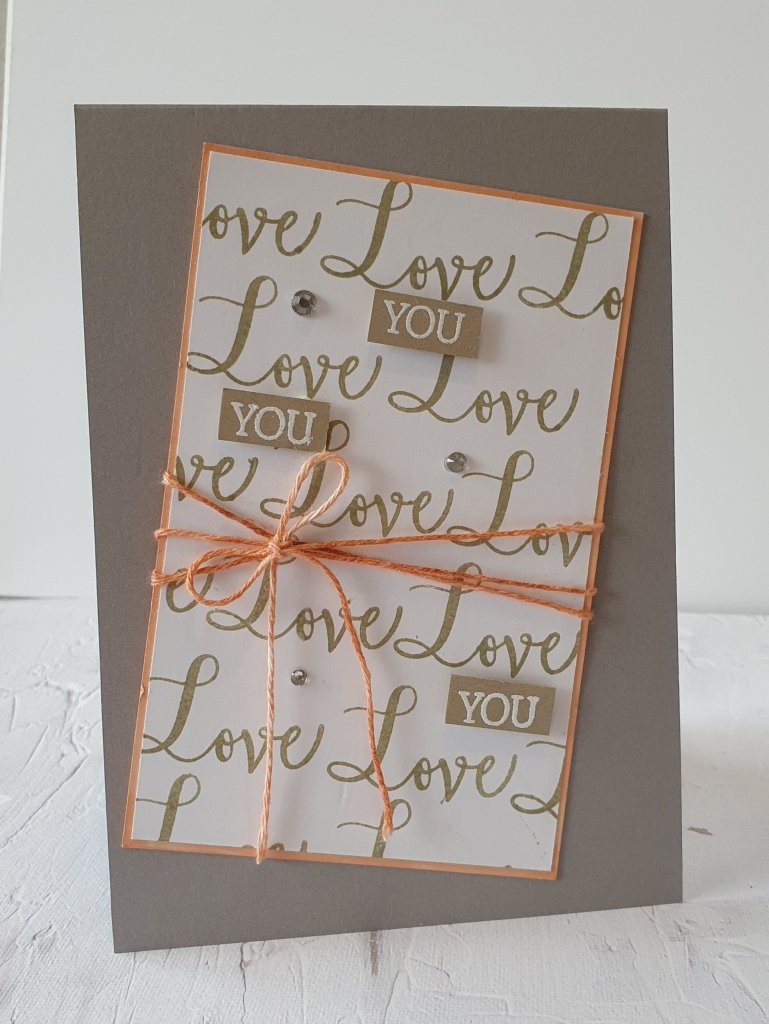 ove Love Lo
YOU
Love Love
YOU
ve Love Lov
e Love Love
YOU
Love Love L
L